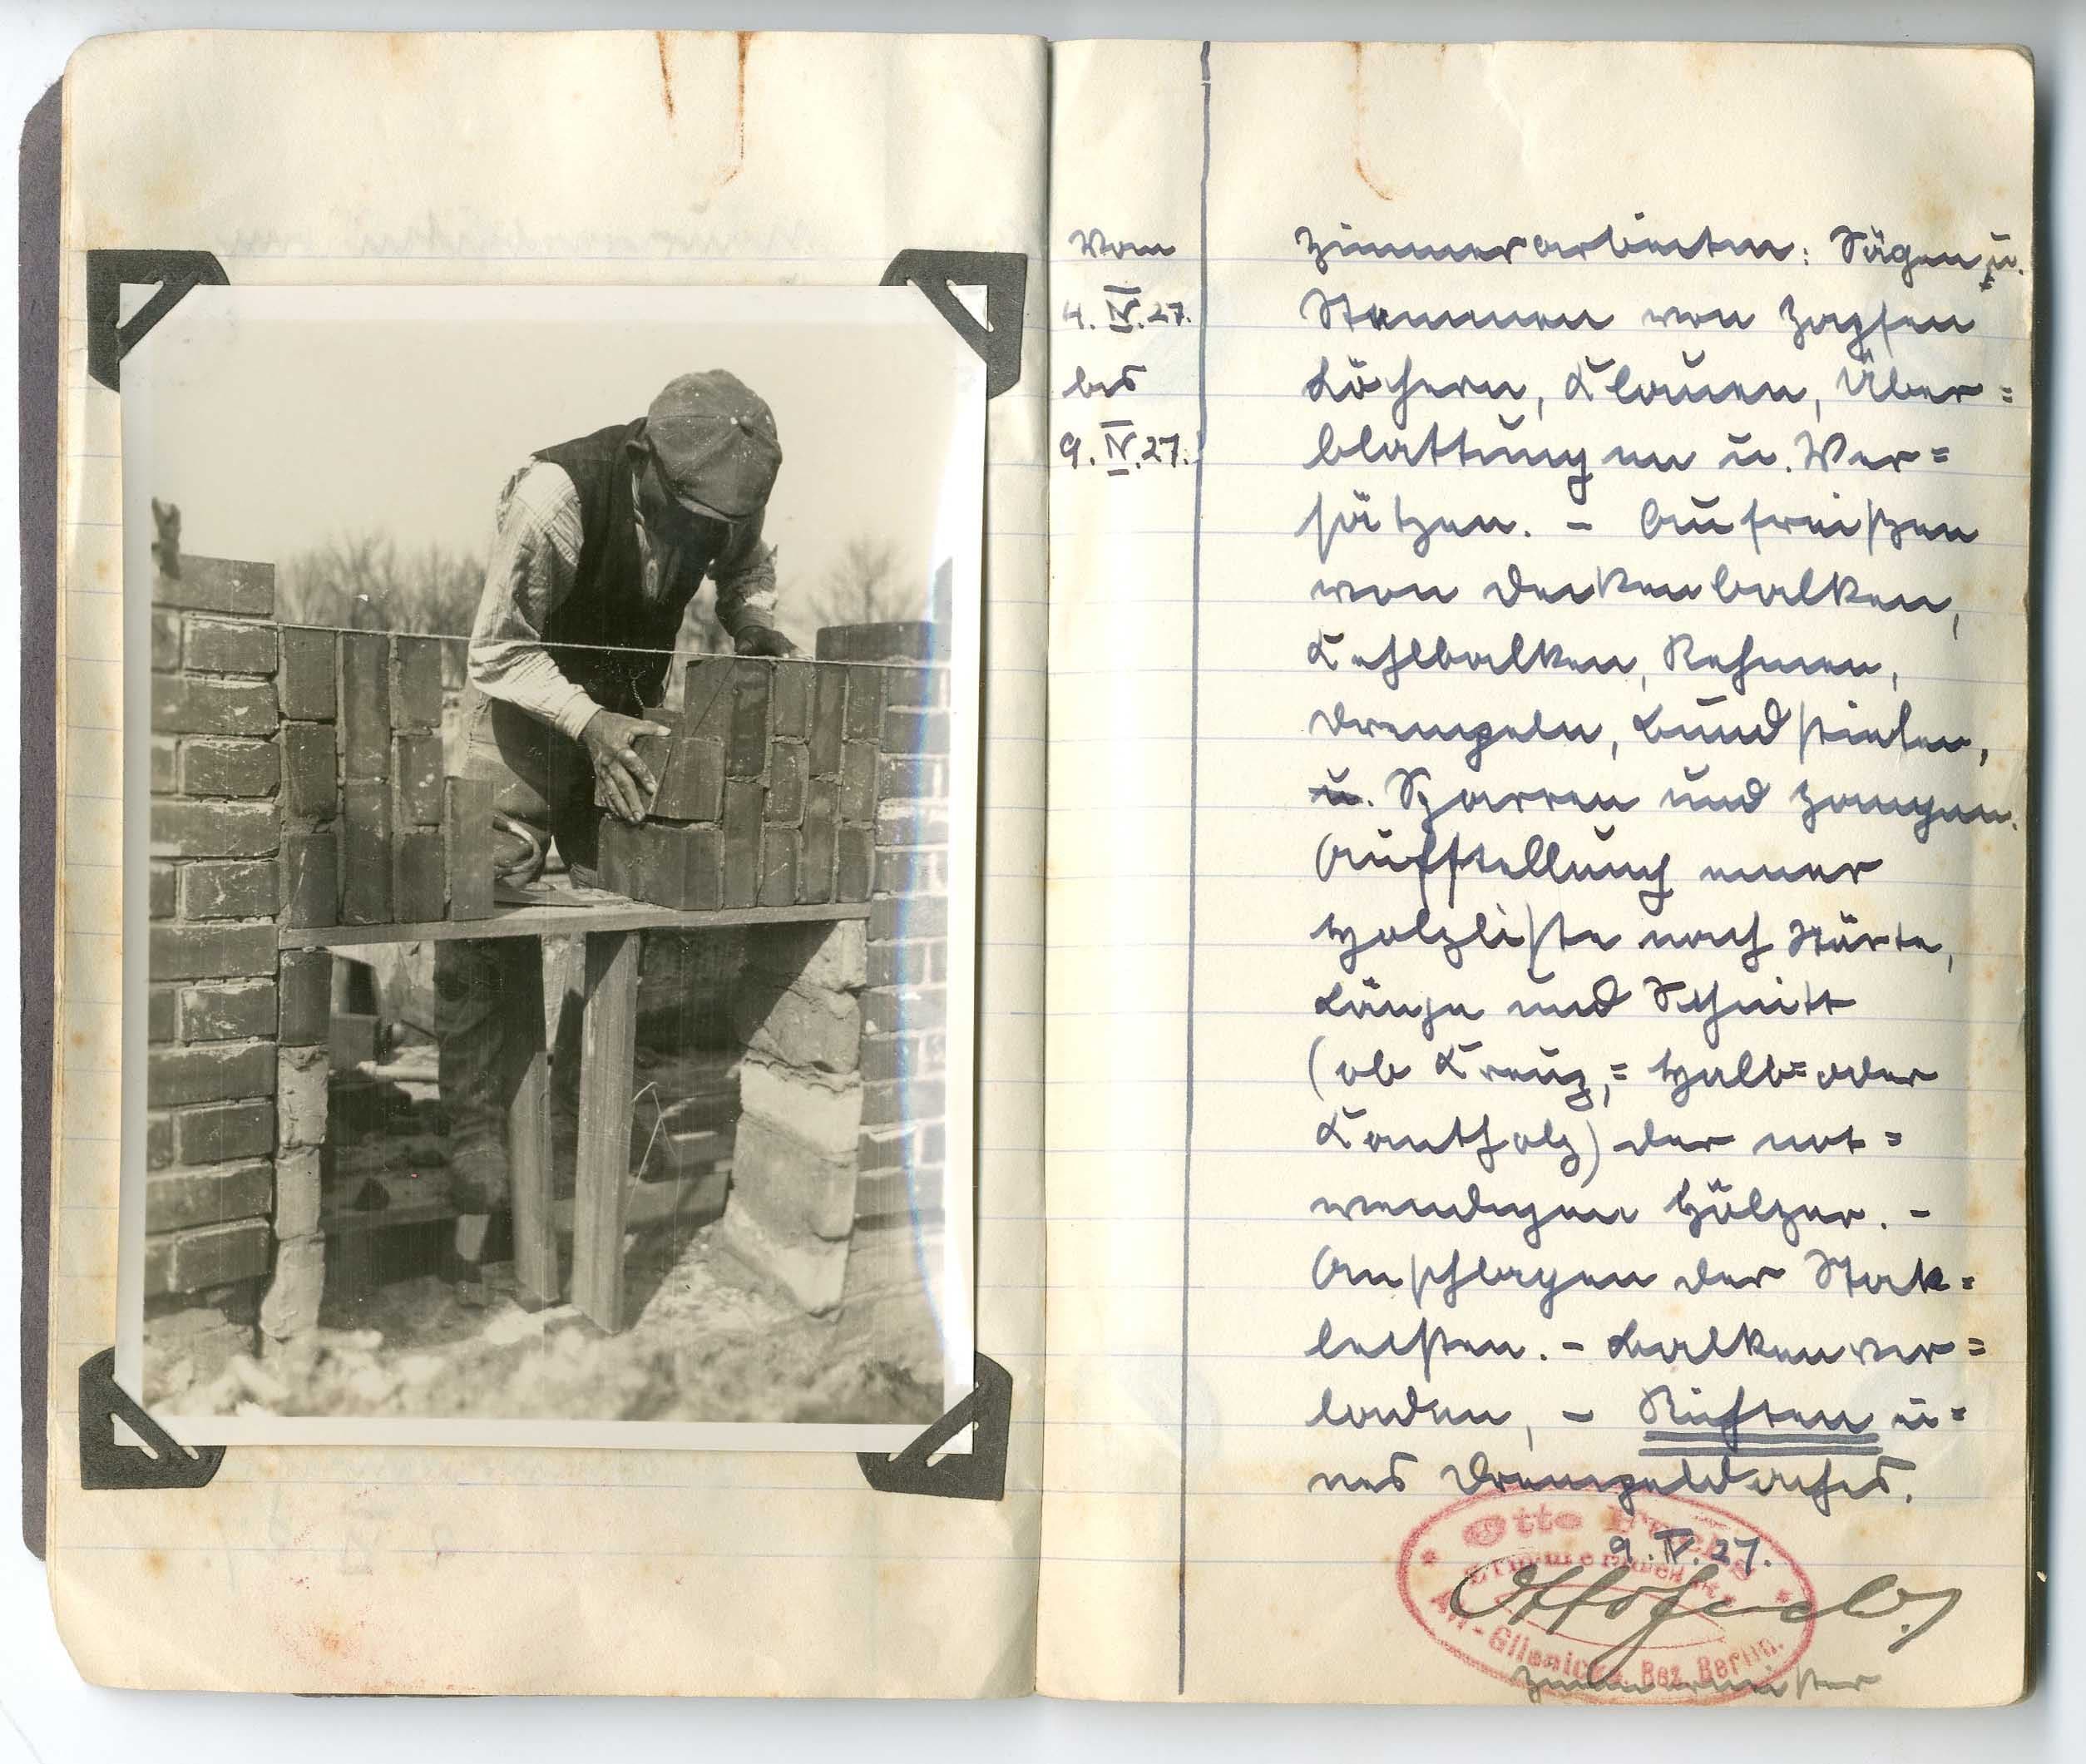 Vom
4. IV. 27.
bis
9. IV. 27.
Zimmerarbeiten: Sägen u.
Stemmen von Zapfen
Löchern, Klauen, Über=
blattungen u. Ver=
sätzen. – Aufreißen
von Deckenbalken,
Kehlbalken, Rehmen,
Drempeln, Bundstielen,
u. Sparren und Zangen.
Aufstellung einer
Holzliste nach Stärke,
Länge und Schnitt
(ob Kreuz,= Halb= oder
Kantholz) der not=
wendigen Hölzer. –
Anschlagen der Stak=
leisten. – Balkenver=
laden, – Richten ei=
nes Drempeldaches.
9. IV. 27.
Otto
Zimmermeister
Alt-Glienicke, Bez. Berlin.
Otto
Zimmermeister